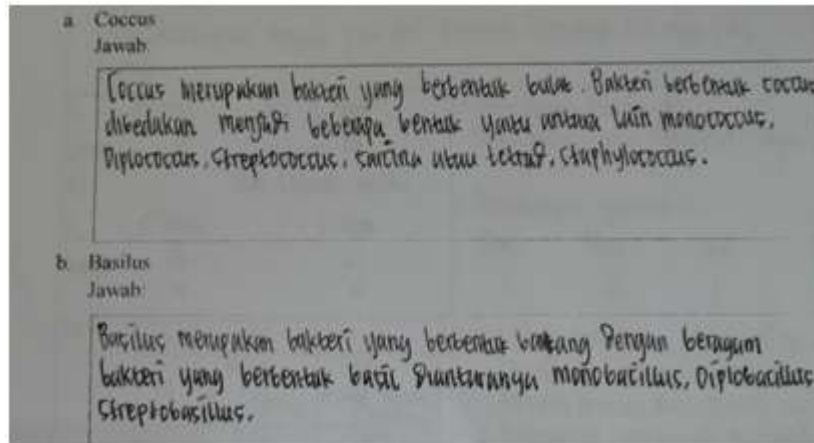 a. Coccus
Jawab:
Coccus merupakan bakteri yang berbentuk bulat. Bakteri berbentuk coccus
dibedakan menjadi beberapa bentuk yaitu antara lain monococcus,
Diplococcus, Streptococcus, sarcina atau tetrad, Staphylococcus.
b. Basilus
Jawab:
Bacillus merupakan bakteri yang berbentuk batang dengan beragam
bakteri yang berbentuk basil diantaranya monobacillus, Diplobacillus
Streptobasillus.